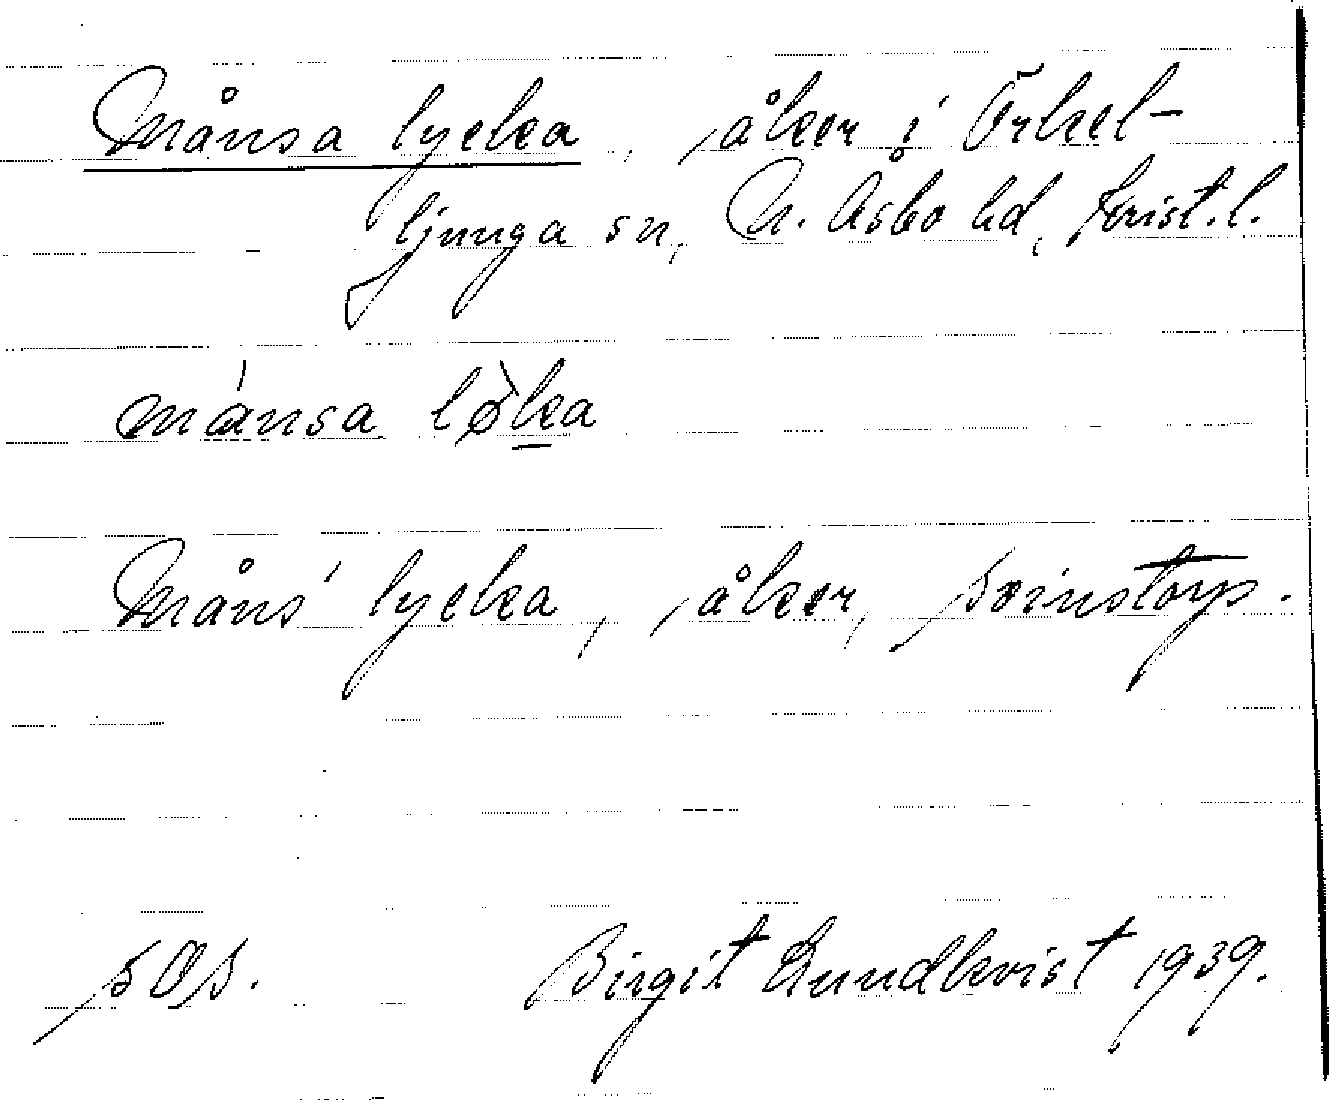 Månsa lycka, åker i Örkel-
ljunga sn, N. Åsbo hd, Krist. l.
månsa lø̀ka
Måns' lycka, åker, Svinstorp.
Birgit Lundkvist 1939.